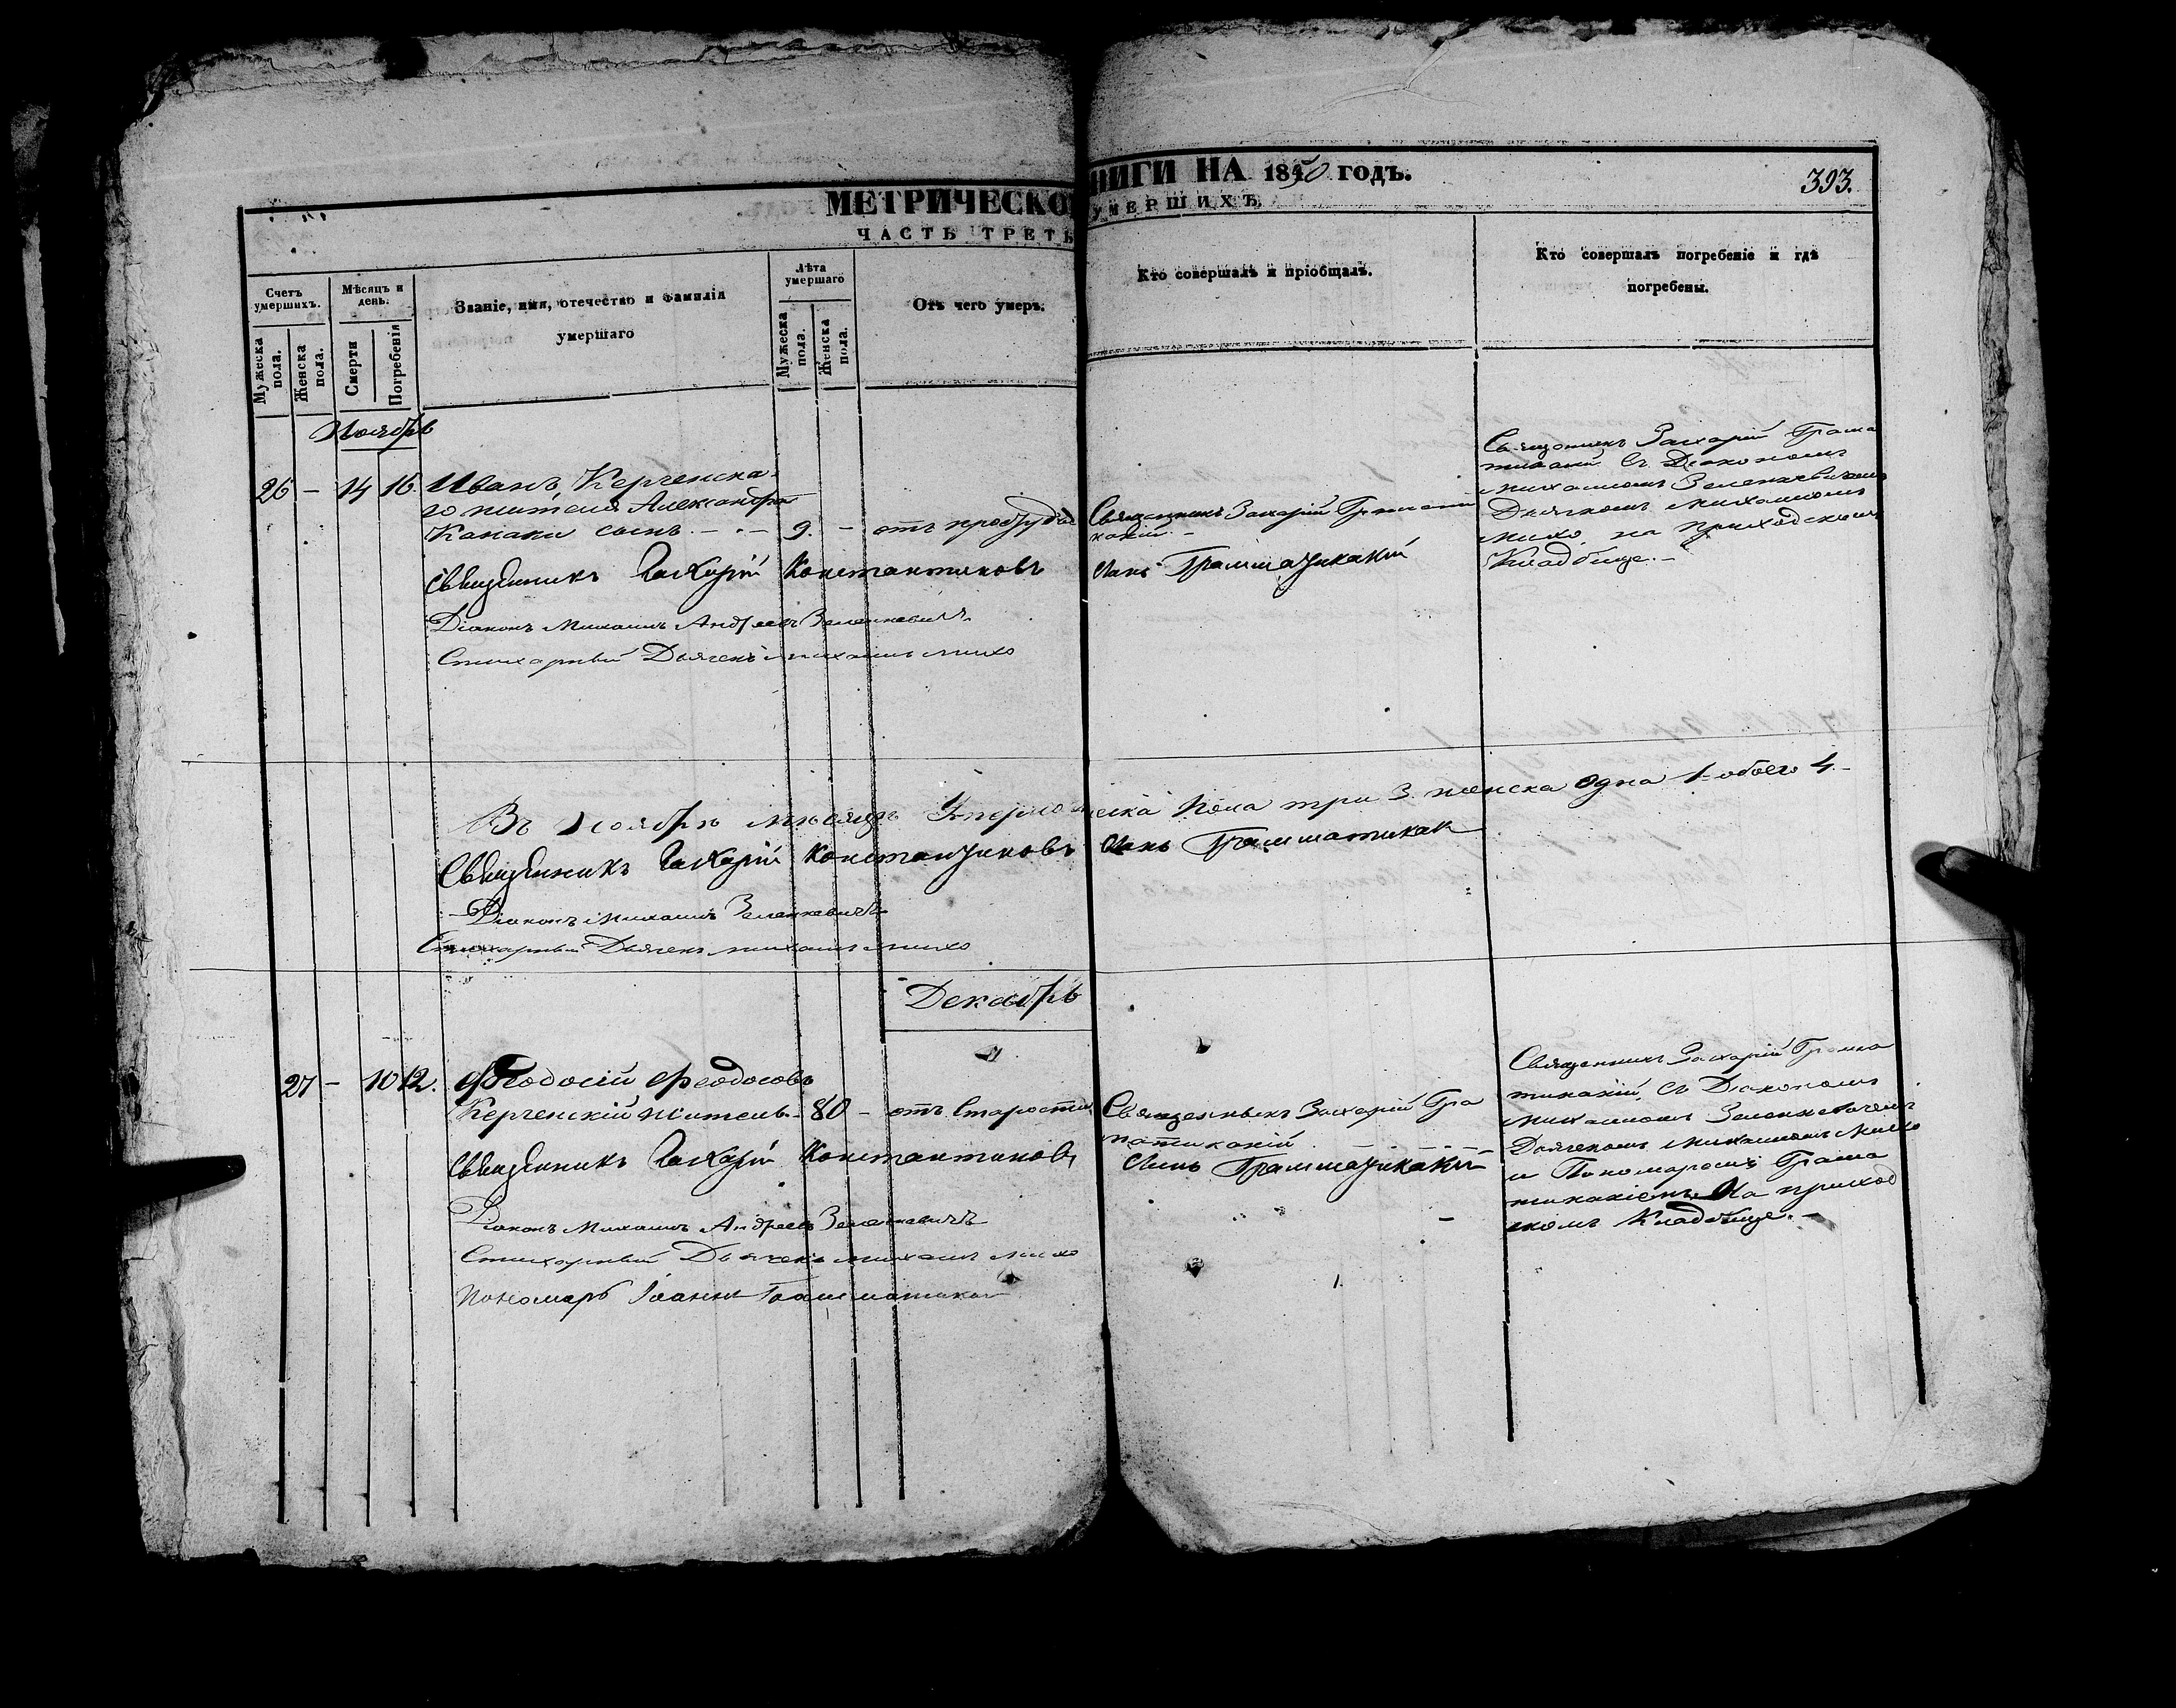 МЕТРИЧЕСКО НИГИ НА 1850 ГОДЪ.
393.
ЧАСТЬ ТРЕТЬ УМЕРШИХЪ.
Счетъ умершихъ.
Мужеска пола.
Женска пола.
Мѣсяцъ и день.
Смерти
Погребенія
Званіе, имя, отечество и фамилія
умершаго
Лѣта умершаго
Мужеска пола.
Женска пола.
Отъ чего умеръ.
Кто совершалъ и пріобщалъ.
Кто совершалъ погребеніе и гдѣ
погребены.
Ноябрь
26 – 14 16. Иванъ, Керченска-
го жителя Александра
Канаки сынъ – 9. – отъ простуды
Священникъ Захарій Грамати
какій. –
Священникъ Захарій Грама
тикакій съ Діакономъ
Михаиломъ Зеленкевичемъ
Дьячкомъ Михаиломъ
Михо, на приходскомъ
Кладбище. –
Священникъ Захарій Константиновъ сынъ Грамматикакій
Діаконъ Михаилъ Андреевъ Зеленкевичъ
Стихарный Дьячекъ Михаилъ Михо
Въ Ноябрѣ мѣсяцѣ Умерло мужеска пола три 3. женска одна 1 – обоего 4. –
Священникъ Захарій Константиновъ сынъ Грамматикак
Діаконъ Михаилъ Зеленкевичъ
Стихарный Дьячекъ Михаилъ Михо
Декабрь
27 – 10 12. Феодосій Феодосовъ
Керченскій житель. 80 – отъ старости
Священникъ Захарій Гра
матикакій.
Священникъ Захарій Грама
тикакій, съ Діакономъ
Михаиломъ Зеленкевичемъ
Дьячкомъ Михаиломъ Михо
и Пономаремъ Грама
тикакіемъ На приход
скомъ Кладбище. –
Священникъ Захарій Константиновъ сынъ Грамматикакій
Діаконъ Михаилъ Андреевъ Зеленкевичъ
Стихарный Дьячекъ Михаилъ Михо
Пономарь Іоаннъ Грамматикакі